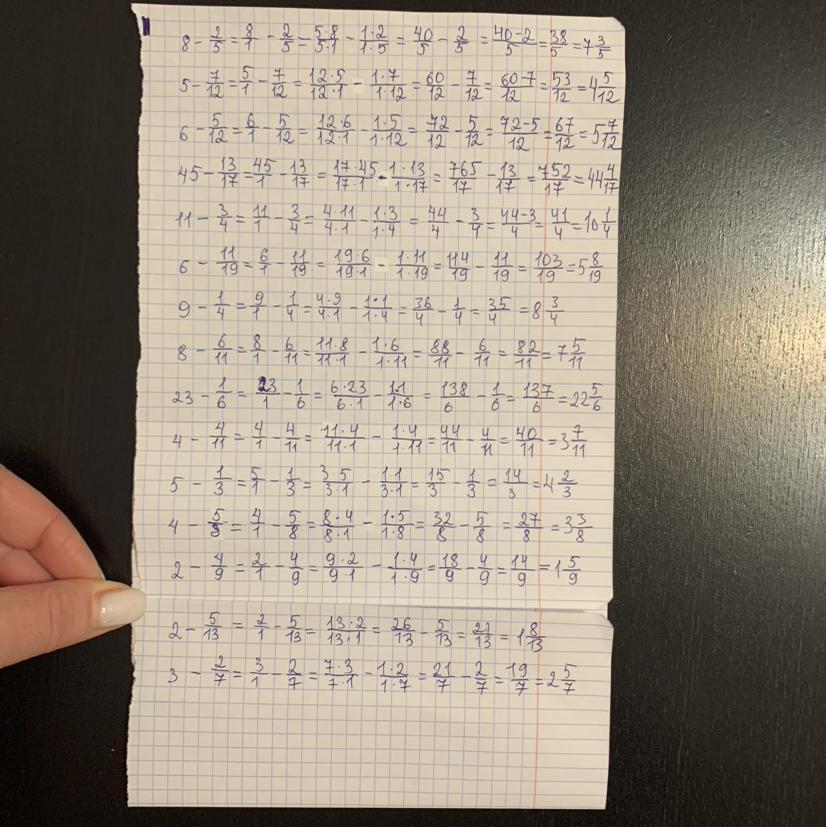 8 - 2/5 = 8/1 - 2/5 = 5·8/5·1 - 1·2/1·5 = 40/5 - 2/5 = 40-2/5 = 38/5 = 7 3/5
5 - 7/12 = 5/1 - 7/12 = 12·5/12·1 - 1·7/1·12 = 60/12 - 7/12 = 60-7/12 = 53/12 = 4 5/12
6 - 5/12 = 6/1 - 5/12 = 12·6/12·1 - 1·5/1·12 = 72/12 - 5/12 = 72-5/12 = 67/12 = 5 7/12
45 - 13/17 = 45/1 - 13/17 = 17·45/17·1 - 1·13/1·17 = 765/17 - 13/17 = 752/17 = 44 4/17
11 - 3/4 = 11/1 - 3/4 = 4·11/4·1 - 1·3/1·4 = 44/4 - 3/4 = 44-3/4 = 41/4 = 10 1/4
6 - 11/19 = 6/1 - 11/19 = 19·6/19·1 - 1·11/1·19 = 114/19 - 11/19 = 103/19 = 5 8/19
9 - 1/4 = 9/1 - 1/4 = 4·9/4·1 - 1·1/1·4 = 36/4 - 1/4 = 35/4 = 8 3/4
8 - 6/11 = 8/1 - 6/11 = 11·8/11·1 - 1·6/1·11 = 88/11 - 6/11 = 82/11 = 7 5/11
23 - 1/6 = 23/1 - 1/6 = 6·23/6·1 - 1·1/1·6 = 138/6 - 1/6 = 137/6 = 22 5/6
4 - 4/11 = 4/1 - 4/11 = 11·4/11·1 - 1·4/1·11 = 44/11 - 4/11 = 40/11 = 3 7/11
5 - 1/3 = 5/1 - 1/3 = 3·5/3·1 - 1·1/3·1 = 15/3 - 1/3 = 14/3 = 4 2/3
4 - 5/8 = 4/1 - 5/8 = 8·4/8·1 - 1·5/1·8 = 32/8 - 5/8 = 27/8 = 3 3/8
2 - 4/9 = 2/1 - 4/9 = 9·2/9·1 - 1·4/1·9 = 18/9 - 4/9 = 14/9 = 1 5/9
2 - 5/13 = 2/1 - 5/13 = 13·2/13·1 = 26/13 - 5/13 = 21/13 = 1 8/13
3 - 2/7 = 3/1 - 2/7 = 7·3/7·1 - 1·2/1·7 = 21/7 - 2/7 = 19/7 = 2 5/7